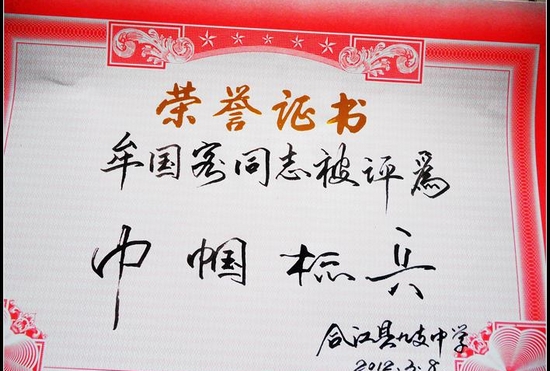 荣誉证书
牟国容同志被评為
巾帼标兵
合江县九支中学
2012.3.8